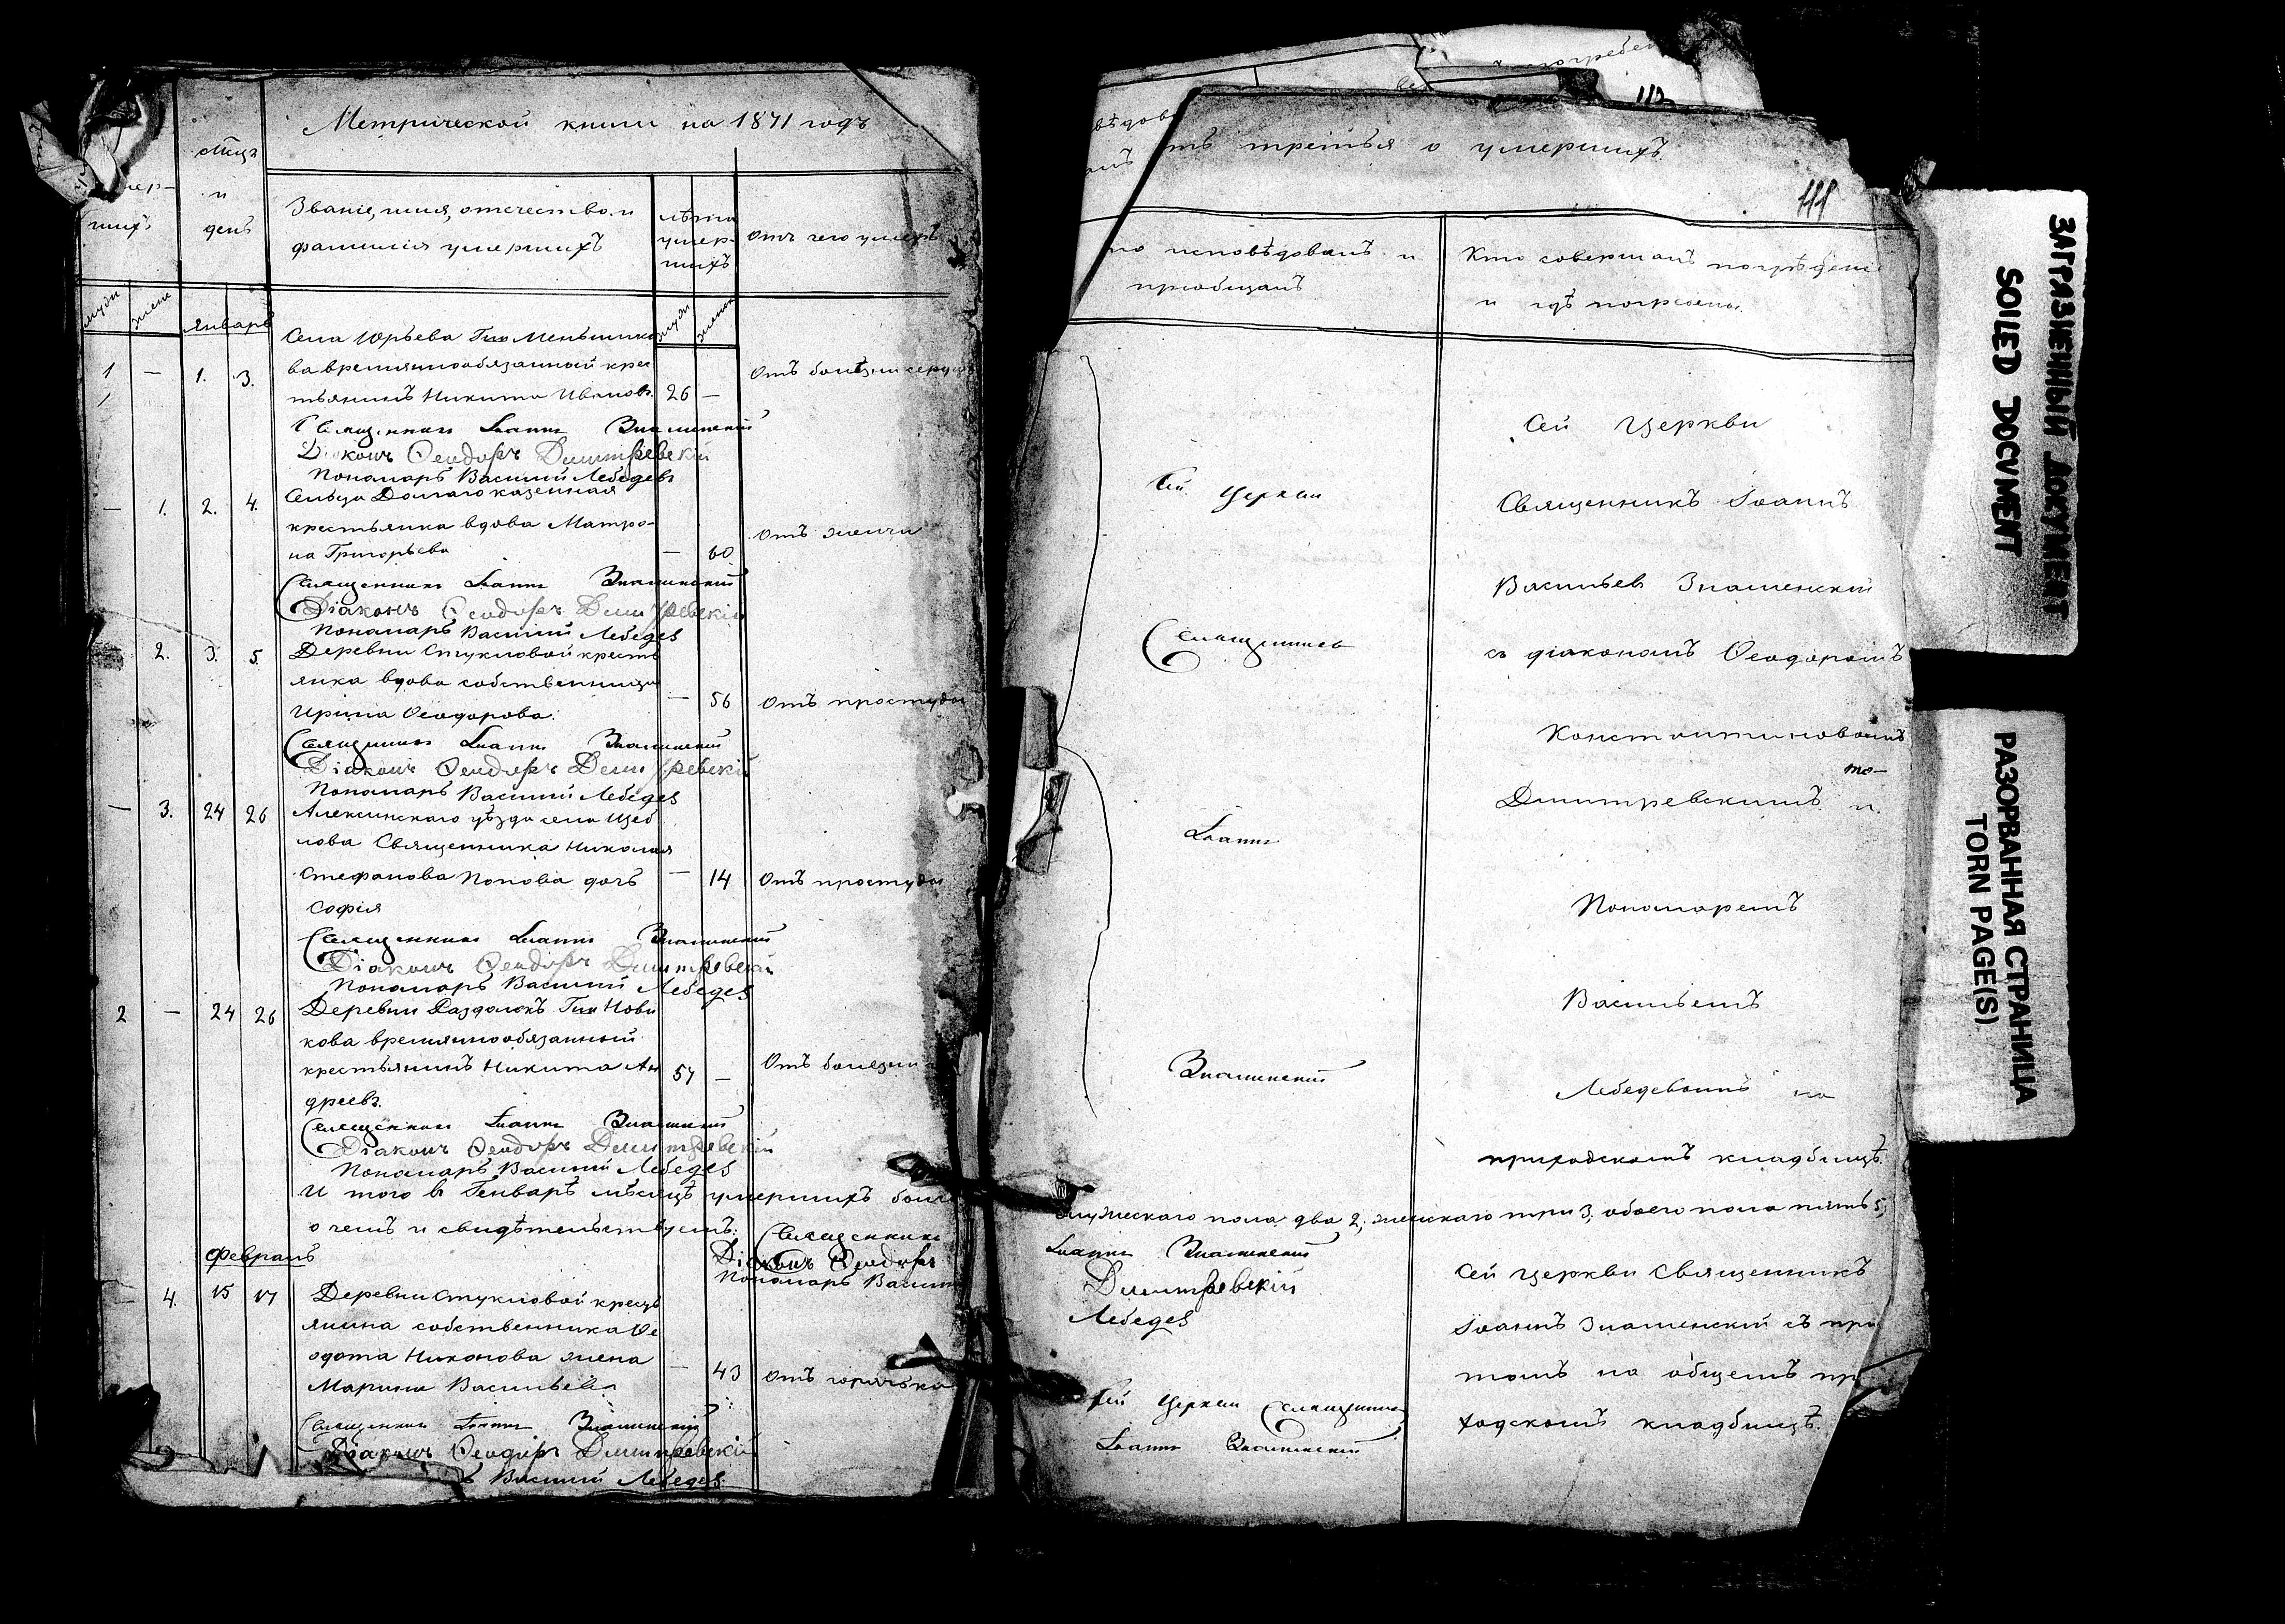 Метрической книги на 1871 годъ
мсцъ
и
день
Званіе, имя, отечество и
фамилія умершихъ
лѣта
умер-
шихъ
Отъ чего умеръ
Январь
Села Юрьева Гна Меньшико
ва временнообязанный крес
тьянинъ Никита Ивановъ
1 — 1. 3.
26 —
Отъ болѣзни
Священникъ Іоаннъ Знаменскій
Діаконъ Ѳеодоръ Димитревскій
Пономарь Василій Лебедевъ
— 1. 2. 4.
Сельца Долгаго казенная
крестьянка вдова Матро-
на Григорьева
— 60
Отъ жолчи
Священникъ Іоаннъ Знаменскій
Діаконъ Ѳеодоръ Димитревскій
Пономарь Василій Лебедевъ
2. 3. 5.
Деревни Стукловой кресть
янка вдова собственница
Ирина Ѳеодорова.
— 56
Отъ простуды
Священникъ Іоаннъ Знаменскій
Діаконъ Ѳеодоръ Димитревскій
Пономарь Василій Лебедевъ
— 3. 24 26
Алексинскаго уѣзда села Щеб
лова Священника Николая
Стефанова Попова дочь
Софія
— 14
Отъ простуды
Священникъ Іоаннъ Знаменскій
Діаконъ Ѳеодоръ Димитревскій
Пономарь Василій Лебедевъ
2 — 24 26
Деревни Раздолокъ Гна Нови
кова временнообязанный
крестьянинъ Никита Ан
дреевъ.
57 —
Отъ болезни
Священникъ Іоаннъ Знаменскій
Діаконъ Ѳеодоръ Димитревскій
Пономарь Василій Лебедевъ
И того въ Генварѣ мѣсяцѣ умершихъ было
о чемъ и свидѣтельствуемъ:
Священникъ
Діаконъ Ѳеодоръ
Пономарь Василій
Февраль
— 4. 15 17
Деревни Стукловой кресть
янина собственника Ѳе
одота Никонова жена
Марина Васильева
— 43
Отъ горячки
Священникъ Іоаннъ Знаменскій
Діаконъ Ѳеодоръ Димитревскій
Василій Лебедевъ
112
третья о умершихъ
111
исповѣдовалъ и
пріобщалъ
Кто совершалъ погребеніе
и гдѣ погребены.
Сей Церкви
Священникъ
Іоаннъ
Знаменскій
Сей Церкви
Священникъ Іоаннъ
Васильев Знаменскій
съ діакономъ Ѳеодоромъ
Константиновымъ
Димитревскимъ и
по-
Пономаремъ
Васильемъ
Лебедевымъ на
приходскомъ кладбищѣ.
мужескаго пола два 2; женскаго три 3; обоего пола пять 5;
Іоаннъ Знаменскій
Димитревскій
Лебедевъ
Сей Церкви Священникъ
Іоаннъ Знаменскій
Сей Церкви Священникъ
Іоаннъ Знаменскій съ при
томъ на общемъ при
ходскомъ кладбищѣ.
ЗАГРЯЗНЕННЫЙ ДОКУМЕНТ
SOILED DOCUMENT
РАЗОРВАННАЯ СТРАНИЦА
TORN PAGE(S)